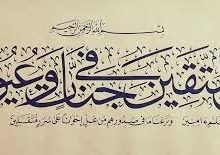 بسم الله الرحمن الرحيم
المتقين في جنات وعيون
آمنين ونزعنا ما في صدورهم من غل إخوانا على سرر متقابلين